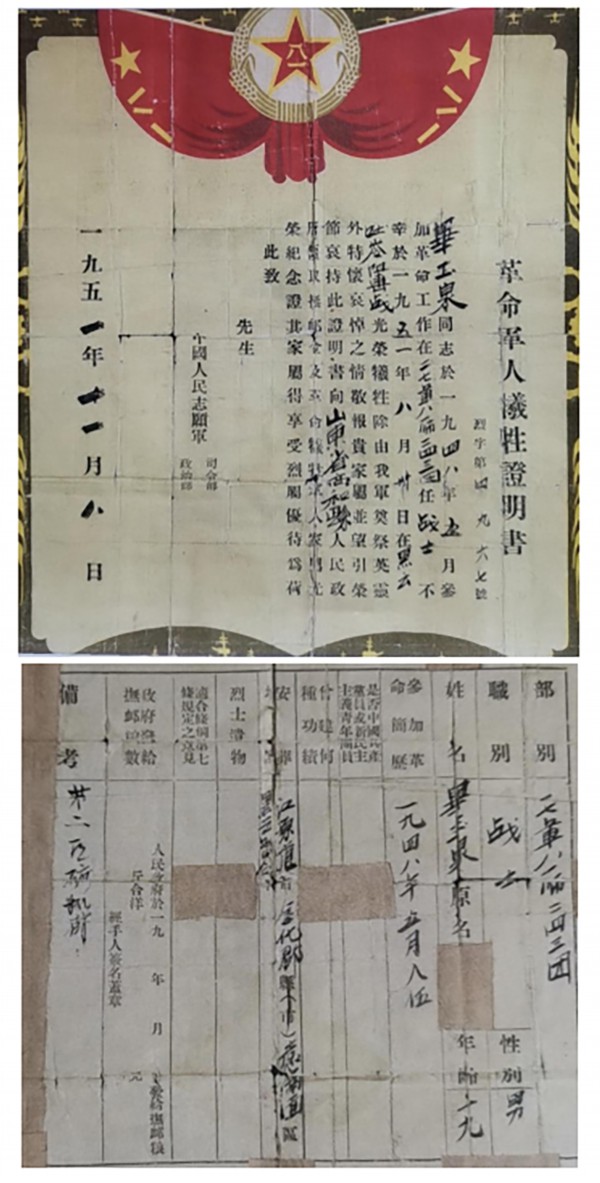 八一
八一
八一
革命軍人犧牲證明書
烈字第 四九六七號
畢玉泉同志於一九四八年五月參
加革命工作在二七軍八一師二四三團任战士不
幸於一九五一年八月卅日在黑云
吐岺阻击战光榮犧牲除由我軍奠祭英靈
外特懷哀悼之情敬報貴家屬並望引榮
節哀持此證明書向山東省 人民政
府領取撫卹金及革命犧牲軍人家屬光
榮紀念證其家屬得享受烈屬優待為荷
此致
先生
中國人民志願軍
司令部
政治部
一九五一年十一月八日
部別
二七軍八一師二四三团
職別
战士
性別
男
姓名
畢玉泉
原名
年齡
十九
參加革命簡歷
一九四八年五月入伍
是否中國共產
黨員或新民主
主義青年團員
曾建何
種功績
安葬
江原道 伊 郡 縣(市) 區
烈士遺物
適合條例第七
條規定之意見
政府發給
撫卹 數
人民政府於一九 年 月 日發給撫卹糧
斤合洋 元
經手人簽名蓋章
備考